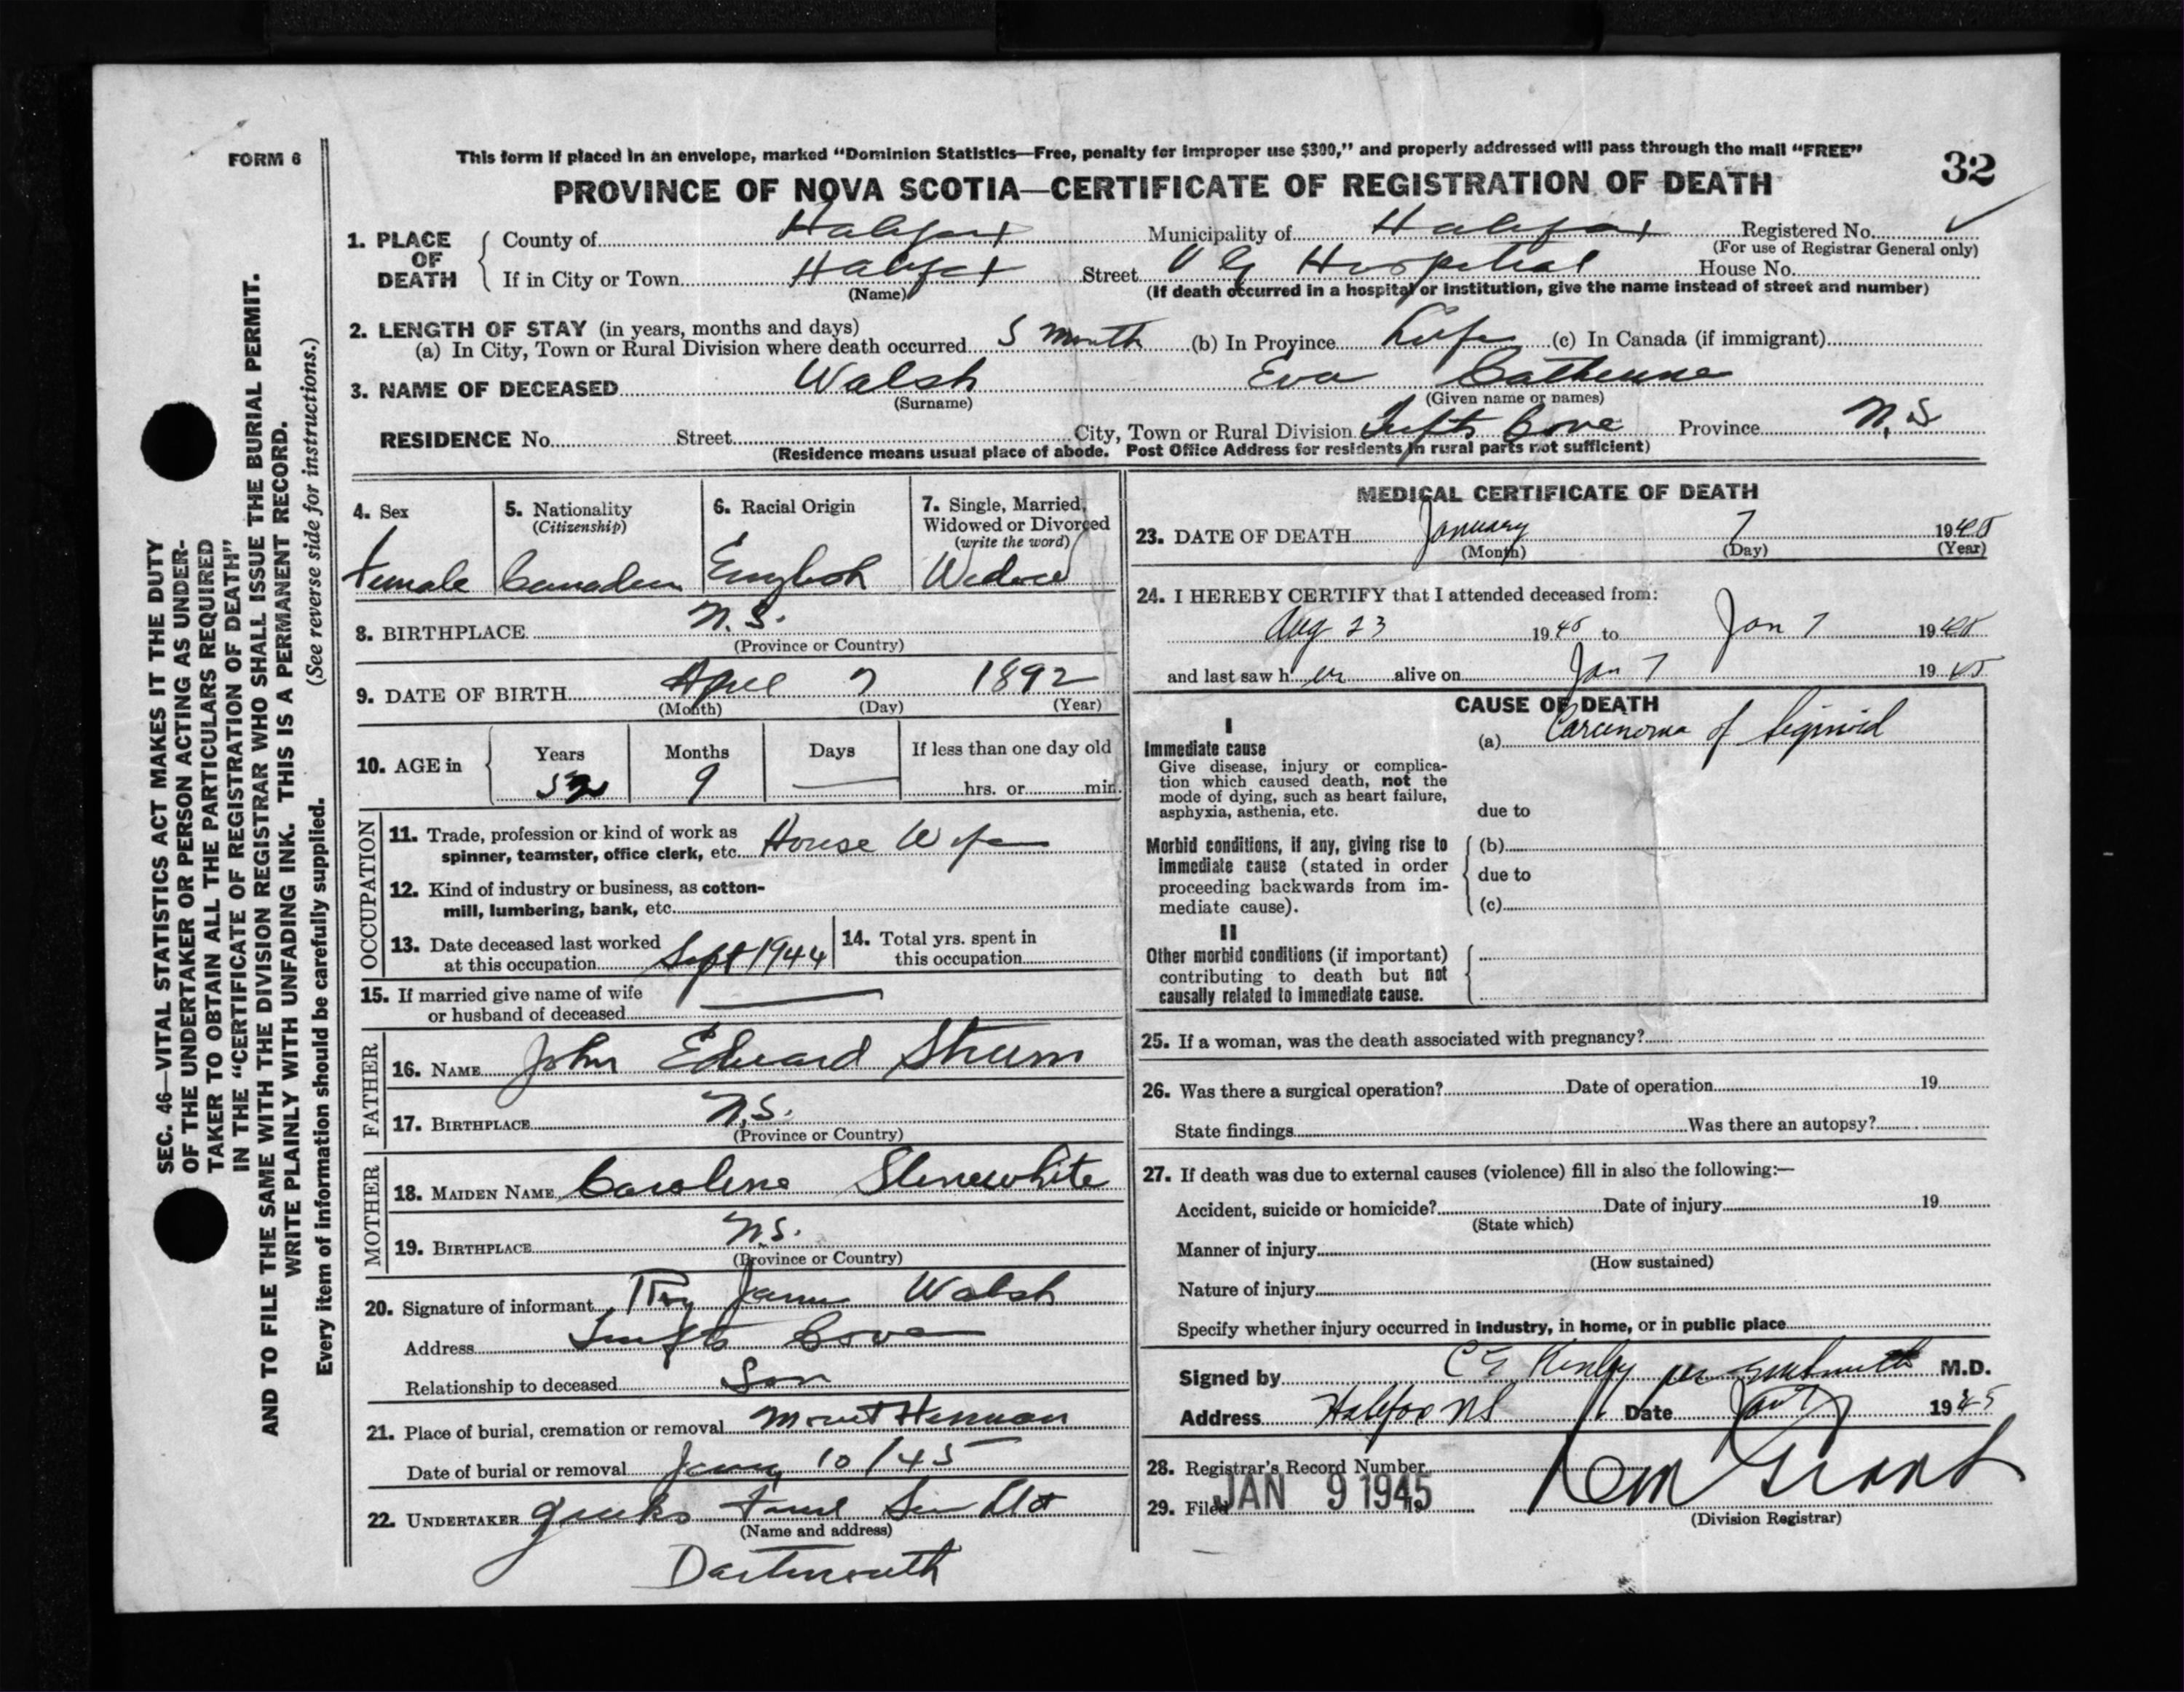 FORM 6
This form if placed in an envelope, marked "Dominion Statistics—Free, penalty for improper use $300," and properly addressed will pass through the mail "FREE"
32
PROVINCE OF NOVA SCOTIA—CERTIFICATE OF REGISTRATION OF DEATH
1. PLACE OF DEATH County of Halifax Municipality of Halifax Registered No. ✓
(For use of Registrar General only)
If in City or Town Halifax Street V G Hospital House No.
(Name) (If death occurred in a hospital or institution, give the name instead of street and number)
2. LENGTH OF STAY (in years, months and days)
(a) In City, Town or Rural Division where death occurred 5 month (b) In Province Life (c) In Canada (if immigrant)
3. NAME OF DECEASED Walsh Eva Catherine
(Surname) (Given name or names)
RESIDENCE No. Street City, Town or Rural Division Tufts Cove Province N.S
(Residence means usual place of abode. Post Office Address for residents in rural parts not sufficient)
4. Sex
Female
5. Nationality
(Citizenship)
Canadian
6. Racial Origin
English
7. Single, Married, Widowed or Divorced
(write the word)
Widow
8. BIRTHPLACE N.S.
(Province or Country)
9. DATE OF BIRTH April 7 1892
(Month) (Day) (Year)
10. AGE in Years Months Days If less than one day old
52 9 — hrs. or min.
OCCUPATION
11. Trade, profession or kind of work as
spinner, teamster, office clerk, etc. House Wife
12. Kind of industry or business, as cotton-
mill, lumbering, bank, etc.
13. Date deceased last worked
at this occupation Sept 1944
14. Total yrs. spent in
this occupation
15. If married give name of wife
or husband of deceased —
FATHER
16. NAME John Edward Strum
17. BIRTHPLACE N.S.
(Province or Country)
MOTHER
18. MAIDEN NAME Caroline Slenewhite
19. BIRTHPLACE N.S.
(Province or Country)
20. Signature of informant Roy James Walsh
Address Tufts Cove
Relationship to deceased Son
21. Place of burial, cremation or removal Mount Herman
Date of burial or removal Jany 10/45
22. UNDERTAKER
(Name and address)
Dartmouth
MEDICAL CERTIFICATE OF DEATH
23. DATE OF DEATH January 7 1945
(Month) (Day) (Year)
24. I HEREBY CERTIFY that I attended deceased from:
Aug 23 1945 to Jan 7 1945
and last saw h er alive on Jan 7 1945
CAUSE OF DEATH
I
Immediate cause
Give disease, injury or complica-
tion which caused death, not the
mode of dying, such as heart failure,
asphyxia, asthenia, etc.
(a) Carcinoma of Sigmoid
due to
Morbid conditions, if any, giving rise to
immediate cause (stated in order
proceeding backwards from im-
mediate cause).
(b)
due to
(c)
II
Other morbid conditions (if important)
contributing to death but not
causally related to immediate cause.
25. If a woman, was the death associated with pregnancy?
26. Was there a surgical operation? Date of operation 19
State findings Was there an autopsy?
27. If death was due to external causes (violence) fill in also the following:—
Accident, suicide or homicide? Date of injury 19
(State which)
Manner of injury
(How sustained)
Nature of injury
Specify whether injury occurred in industry, in home, or in public place
Signed by C E Kinley per M.D.
Address Halifax NS Date Jan 7 1945
28. Registrar's Record Number
29. Filed JAN 9 1945 19
Grant
(Division Registrar)
SEC. 46—VITAL STATISTICS ACT MAKES IT THE DUTY
OF THE UNDERTAKER OR PERSON ACTING AS UNDER-
TAKER TO OBTAIN ALL THE PARTICULARS REQUIRED
IN THE "CERTIFICATE OF REGISTRATION OF DEATH"
AND TO FILE THE SAME WITH THE DIVISION REGISTRAR WHO SHALL ISSUE THE BURIAL PERMIT.
WRITE PLAINLY WITH UNFADING INK. THIS IS A PERMANENT RECORD.
Every item of information should be carefully supplied. (See reverse side for instructions.)